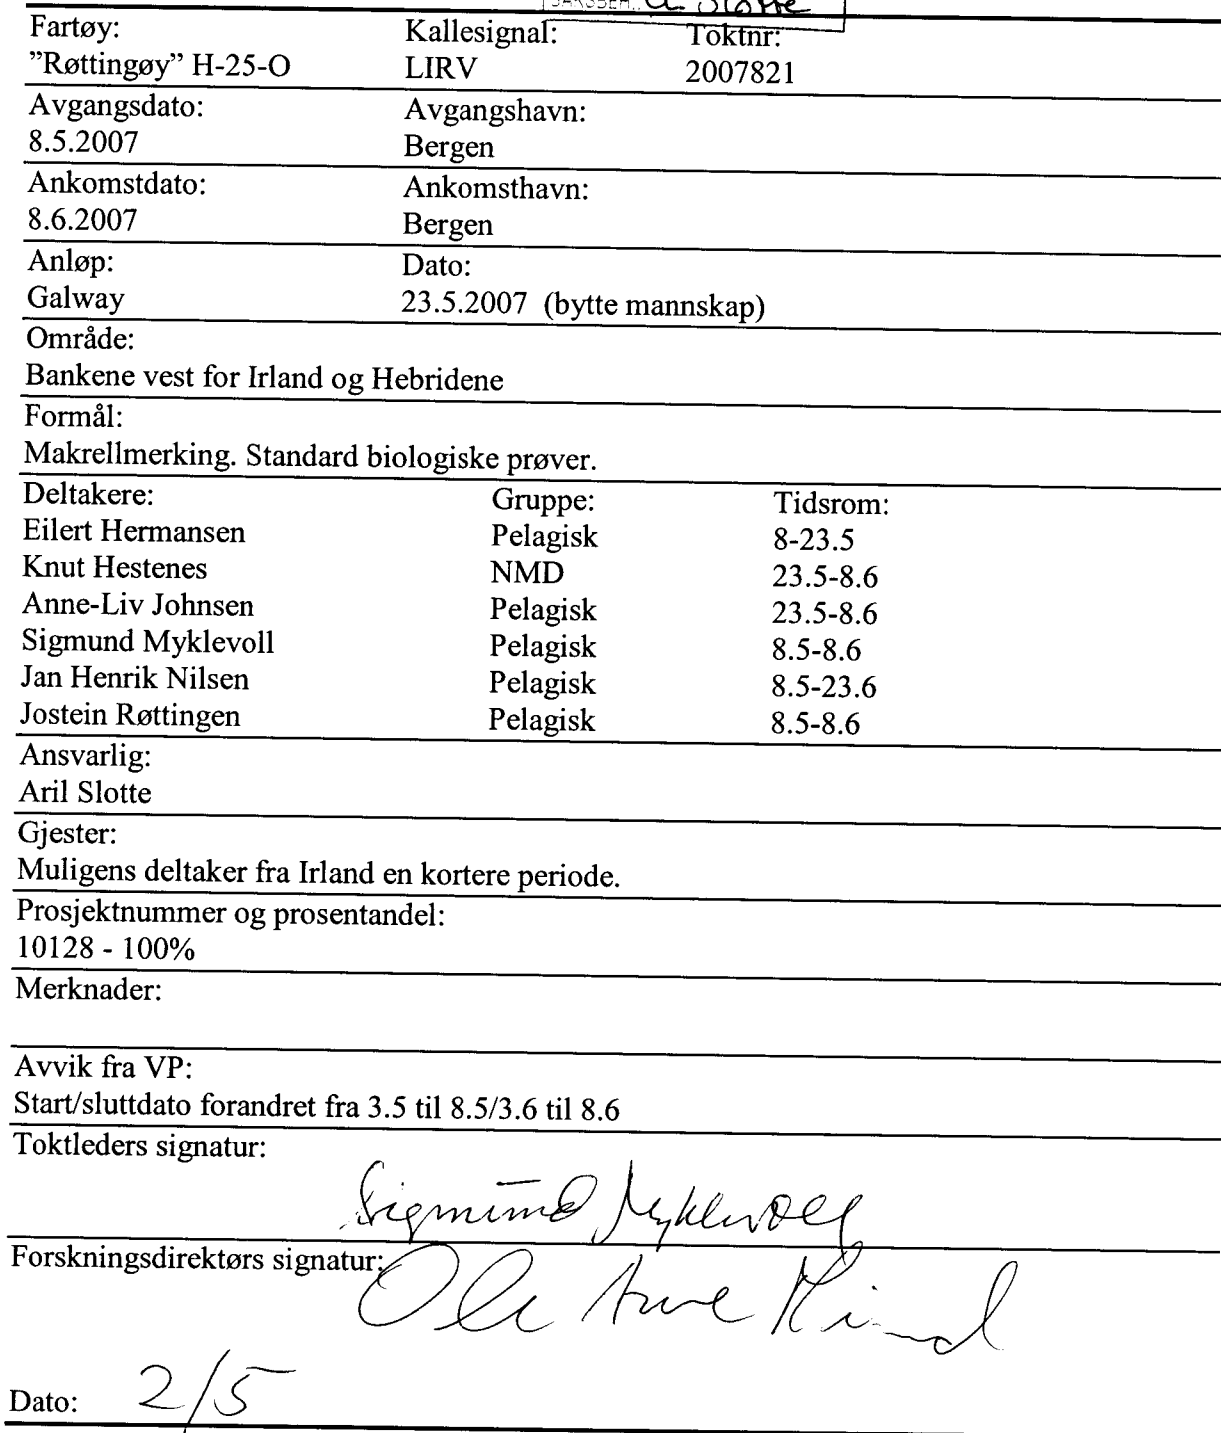 a. Slotte
Fartøy: Kallesignal: Toktnr:
"Røttingøy" H-25-O LIRV 2007821
Avgangsdato: Avgangshavn:
8.5.2007 Bergen
Ankomstdato: Ankomsthavn:
8.6.2007 Bergen
Anløp: Dato:
Galway 23.5.2007 (bytte mannskap)
Område:
Bankene vest for Irland og Hebridene
Formål:
Makrellmerking. Standard biologiske prøver.
Deltakere: Gruppe: Tidsrom:
Eilert Hermansen Pelagisk 8-23.5
Knut Hestenes NMD 23.5-8.6
Anne-Liv Johnsen Pelagisk 23.5-8.6
Sigmund Myklevoll Pelagisk 8.5-8.6
Jan Henrik Nilsen Pelagisk 8.5-23.6
Jostein Røttingen Pelagisk 8.5-8.6
Ansvarlig:
Aril Slotte
Gjester:
Muligens deltaker fra Irland en kortere periode.
Prosjektnummer og prosentandel:
10128 - 100%
Merknader:
Avvik fra VP:
Start/sluttdato forandret fra 3.5 til 8.5/3.6 til 8.6
Toktleders signatur:
Sigmund Myklevoll
Forskningsdirektørs signatur:
Ole Arve
Dato: 2/5